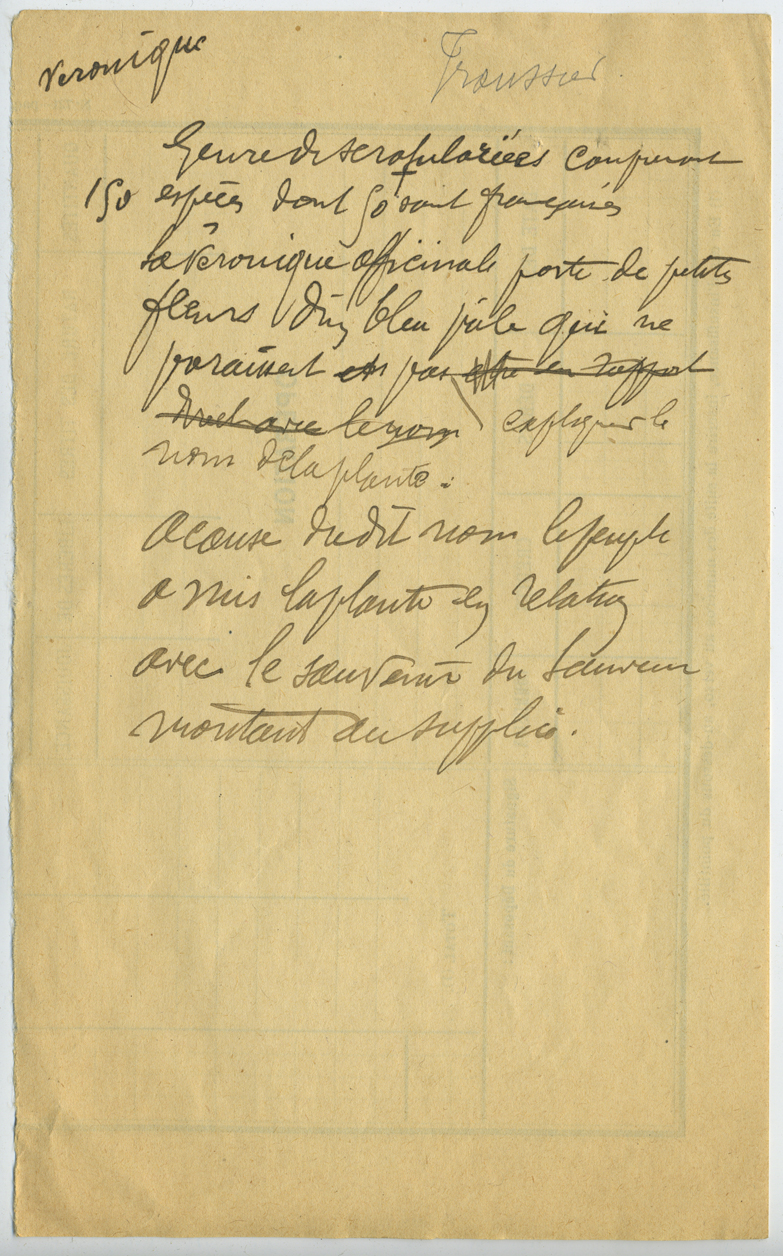 Veronique
Troussier
Genre de scrofulariées comprenant
150 espèces dont 50 sont françaises
La Véronique officinale porte de petites
fleurs d'un bleu pâle qui ne
paraissent pas être en rapport
direct avec le nom expliquer le
nom de la plante.
A cause du dit nom le peuple
a mis la plante en relation
avec le souvenir du Sauveur
montant au supplice.